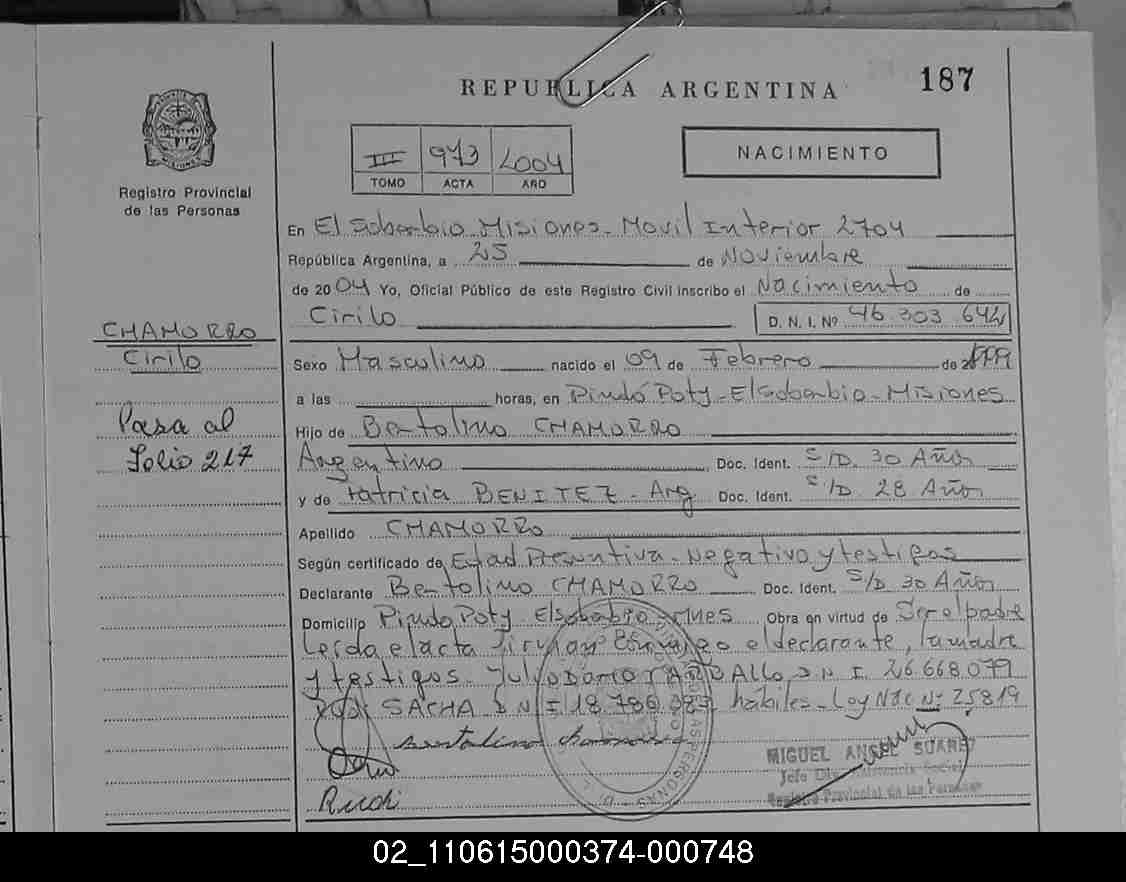 REPUBLICA ARGENTINA
187
Registro Provincial
de las Personas
III 973 2004
TOMO ACTA AÑO
NACIMIENTO
En El Soberbio Misiones - Movil Interior 2704
República Argentina, a 25 de Noviembre
de 2004 Yo, Oficial Público de este Registro Civil inscribo el Nacimiento de
Cirilo D. N. I. Nº 46.303.642
CHAMORRO
Cirilo
Pasa al
Folio 217
Sexo Masculino nacido el 09 de Febrero de 1999
a las horas, en Pindó Poty - El Soberbio - Misiones
Hijo de Bertolino CHAMORRO
Argentino Doc. Ident. S/D. 30 Años
y de Patricia BENITEZ - Arg Doc. Ident. S/D 28 Años
Apellido CHAMORRO
Según certificado de Edad Presuntiva - Negativo y testigos
Declarante Bertolino CHAMORRO Doc. Ident. S/D 30 Años
Domicilio Pindo Poty El Soberbio - Mnes Obra en virtud de Ser el padre
Leida el acta firman conmigo el declarante, la madre
y testigos. Julio Dario D N I. 26.668.079
SACHA D N I 18.786.387 habiles - Ley Nac Nº 25819
Bertolino Chamorro
Rudi
MIGUEL ANGEL SUAREZ
Registro Provincial de las Personas
02_110615000374-000748